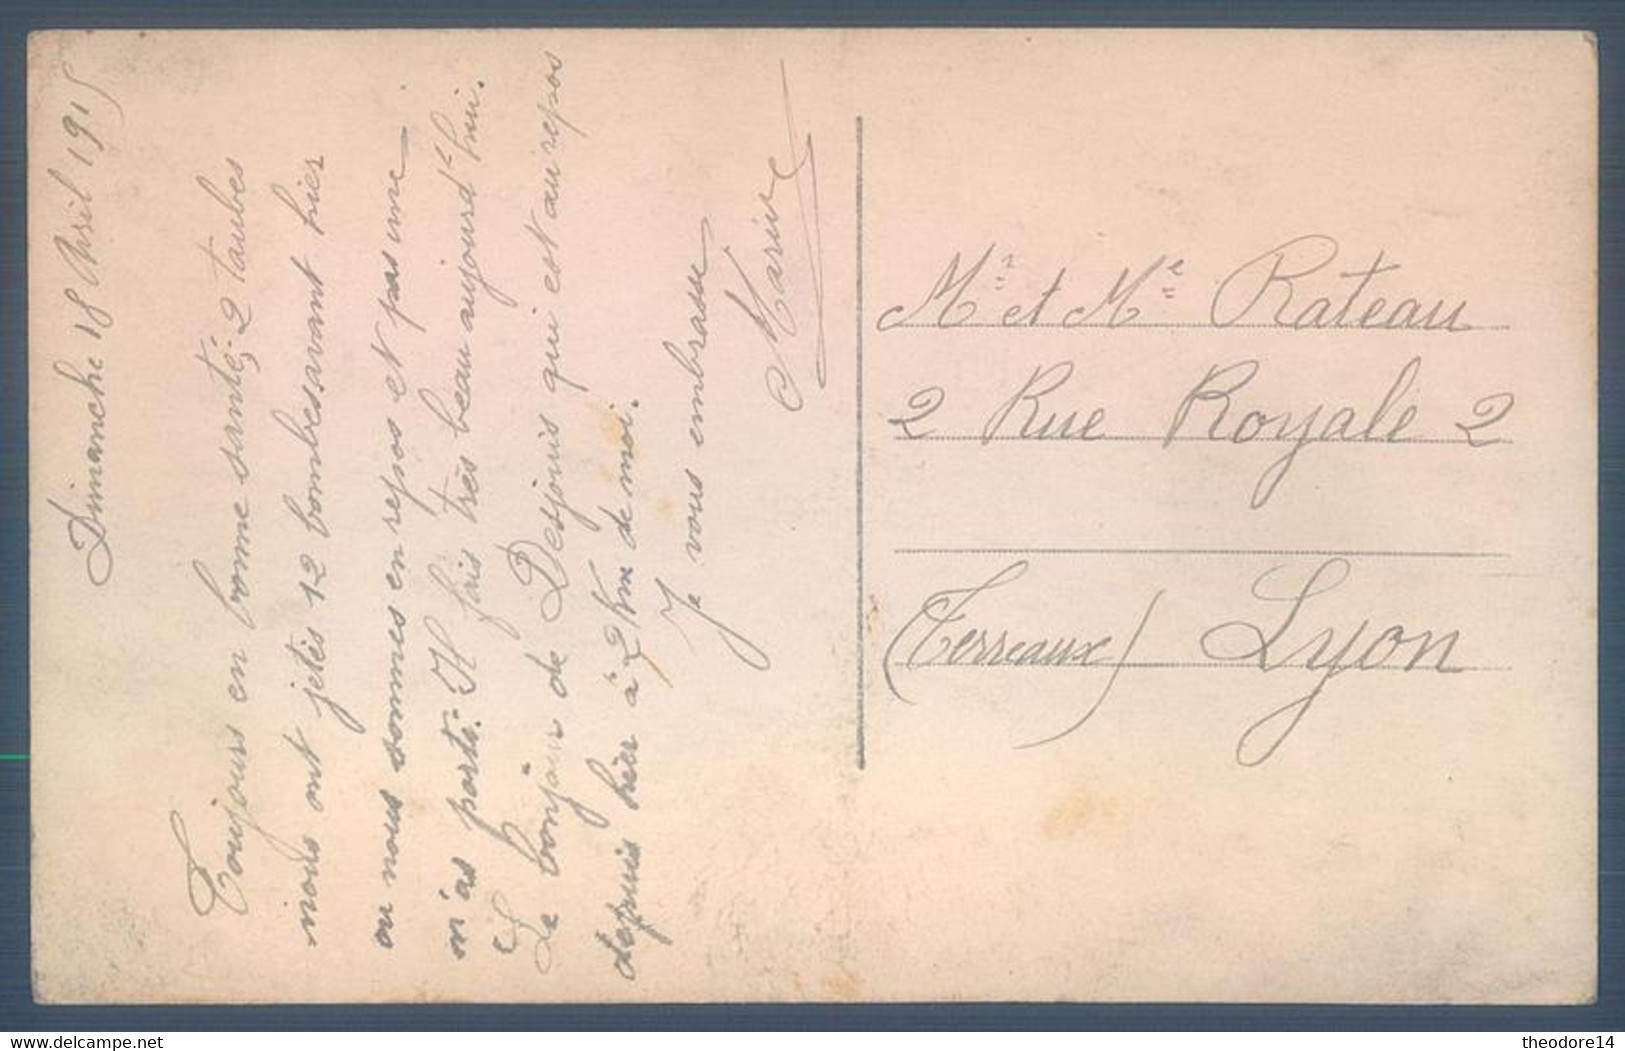 Dimanche 18 Avril 1915
Toujours en bonne santé; 2 taubes
nous ont jetés 12 bombes avant hier
ou nous sommes en repos et pas une
n'as porté. Il fais très beau aujourd'hui.
Le bonjour de Desjouis qui est au repos
depuis hier à 2 Km de moi.
Je vous embrasse
Marius
Mr et Me Rateau
2 Rue Royale 2
(Terreaux) Lyon
delcampe.net
theodore14